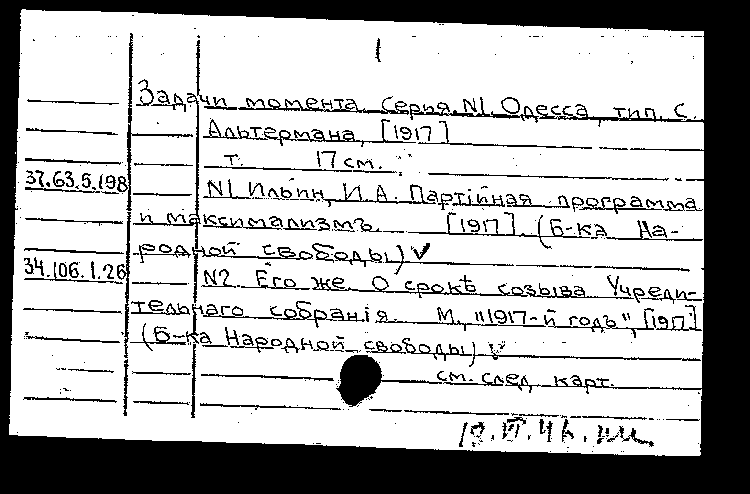 1
Задачи момента. Серья N1. Одесса, тип. С.
Альтермана, [1917]
т. 17 см.
37.63.5.198 N1 Ильин, И. А. Партійная программа
и максимализмъ. [1917]. (Б-ка На-
родной свободы) ✓
34.106.1.26 N2. Его же. О срокѣ созыва Учреди-
тельнаго собранія. М., "1917-й годъ", [1917]
(Б-ка Народной свободы) ✓
см. след. карт.